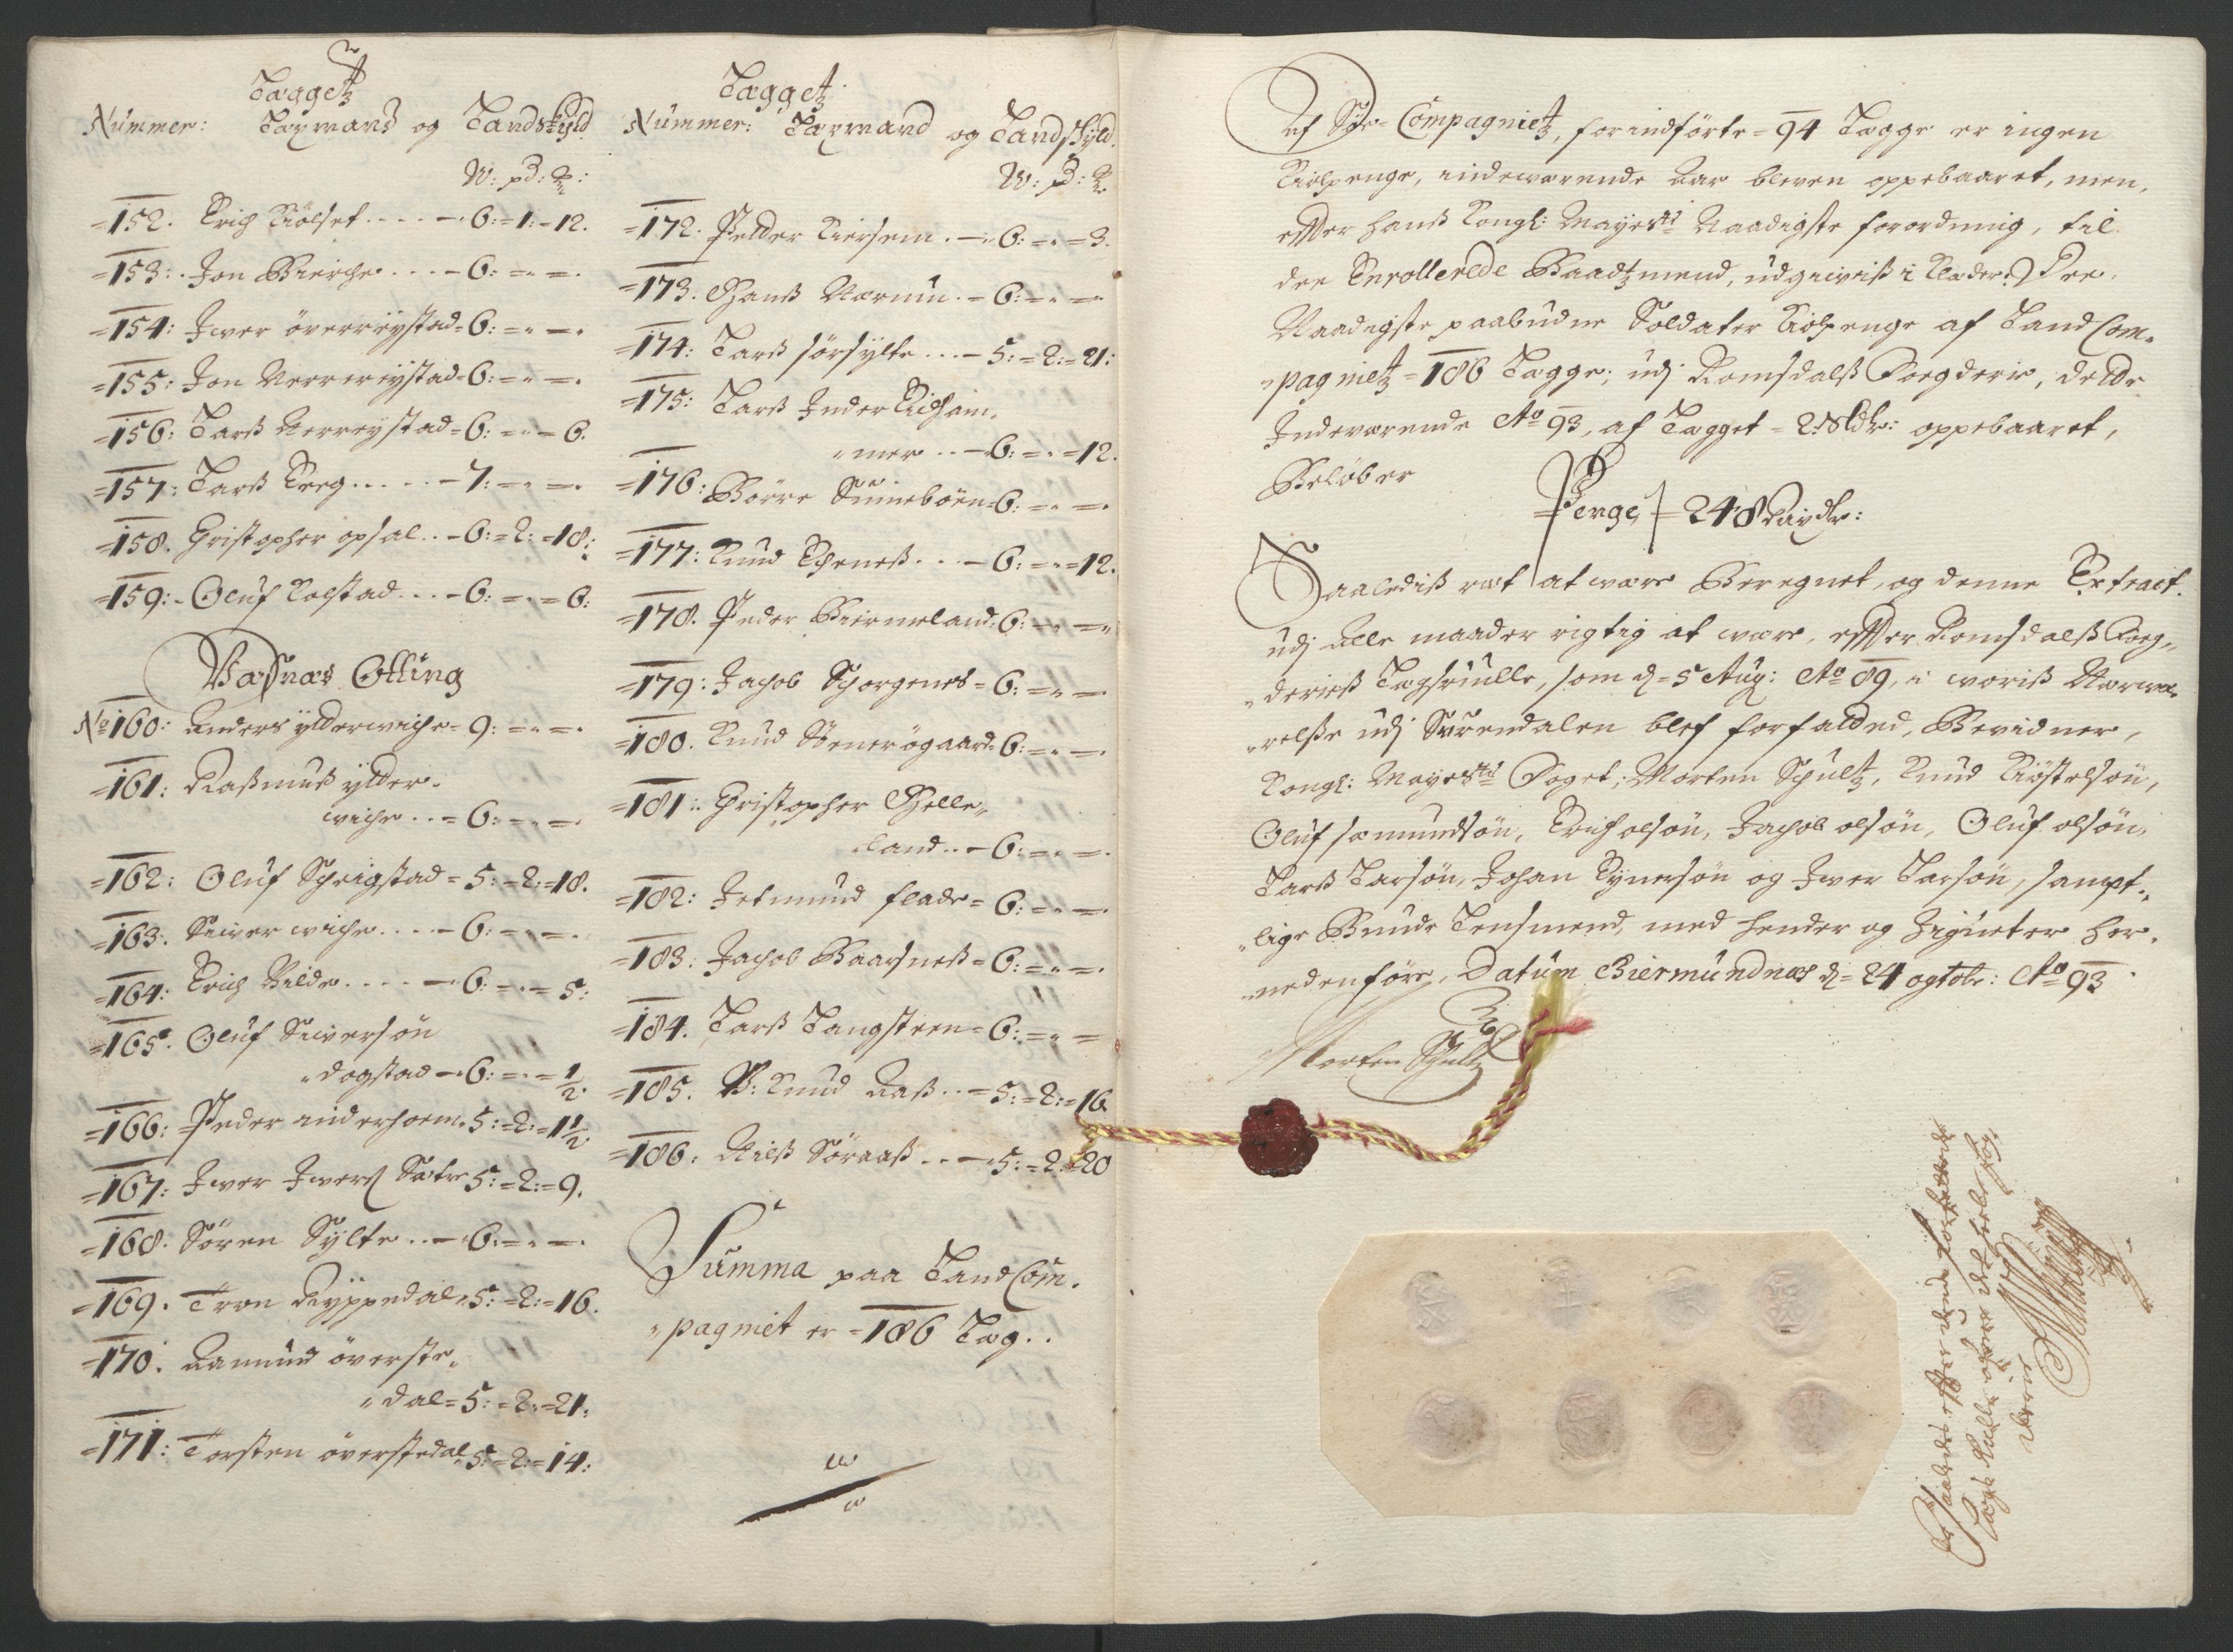 Lægget
Nummer: Laxmand og Landskyld
W: pd: ℔:
=152. Erich Kiölset .... - 6:=1:=12.
=153: Jon Bierche .... - 6:=„=.
=154: Iver överreystad= 6:=„=.
=155: Jon Nerrereystad= 6:=„=.
=156: Larß Nerreystad= 6:=„=6.
=157: Larß Eeeg ..... - 7:=„=.
=158. Christopher opsal .. - 6:=2:=18:
=159: Oluf Kolstad ... - 6:=„=6:
Vasnæs Otting
No 160: Anders ytterwiche= 9:=„=.
=161: Raßmuß ytter-
wiche .. = 6:=„=.
=162: Oluf Schrigstad= 5:=2:=18.
=163: Siver wiche .... - 6:=„=.
=164: Erich Vilde ..... - 6:=„=5:
=165. Oluf Siversön
„dogstad - 6:=„=1/2.
=166: Peder inderhoem. 5:=2:=1 1/2.
=167: Iver Iverß Sætre 5:=2:=9.
=168. Sören Sylte .. - 6:=„=.
=169. Tron Ryppedal. 5:=2:=16.
=170. Aamund överste„
„dal= 5:=2:=21:
=171: Torsten överstedal 5:=2:=14:
Lægget
Nummer: Laxmand og Landskyld.
W: pd: ℔.
=172. Petter Kiersem . - 6:=„=3.
=173. Hanß Nærem . - 6:=„=
=174: Larß sörsylte ... - 5:=2:=21:
=175: Larß Inder Eidham„
„mer .. - 6:=„=12.
=176: Börre Sünneböen= 6:=„=.
=177: Knud Eheneß ... - 6:=„=12.
=178. Peder Biermeland. 6:=„=„
=179: Jachob Schorgenes= 6:=„=
=180. Knud Stenerögaard. 6:=„=.
=181: Christopher Helle„
„land .. - 6:=„=.
=182: Jetmund flade= 6:=„=.
=183: Jachob Baarsneß= 6:=„=.
=184. Larß Langsteen= 6:=„=
=185. Knud Aaß .. = 5:=2:=16
=186: Nilß Söraaß .. - 5:=2:=20
Summa paa Land Com„
„pagniet er =186 Læg..
Af Siöe= Compagnietz, forindförte =94 Lægge er ingen
Kiolpenge, indeværende Aar bleven oppebaaret, men,
efter hanß Kongl: Mayestz Naadigste forordning, til
dee Enrollerede Baadtzmend, udgiviß i Klæder: Dee
Naadigste paabudne Soldater Kiolpenge af Land Com„
„pagnietz =186 Lægge; udj Romsdalß Foegderie, dette
Indeværende Ao 93, af Lægget = 2: Sldr: oppebaaret,
Beløber
Penge - 248 Slldr:
Saalediß ret at være Beregnet, og denne Extract.
udj alle maader rigtig at være, effter Romsdalß Foeg„
„derieß Lægsrulle, som d= 5 Aug: Ao 89, i voriß Nærvæ„
„relße udj Surendalen blef forfatted, Bevidner,
Kongl: Mayestz Foget, Morten Schultz, Knud Kiöstelsön,
Oluf somundsön, Erich olsön, Jachob olsön, Oluf olsön,
Larß Larsön, Johan Eynersön og Iver Larsön, sampt„
„lige Bunde Lensmend, med hender og Zigneter her„
„nedenföre, Datum Biermundnæs d= 24 ogtobr: Ao 93.
Morten Schultz